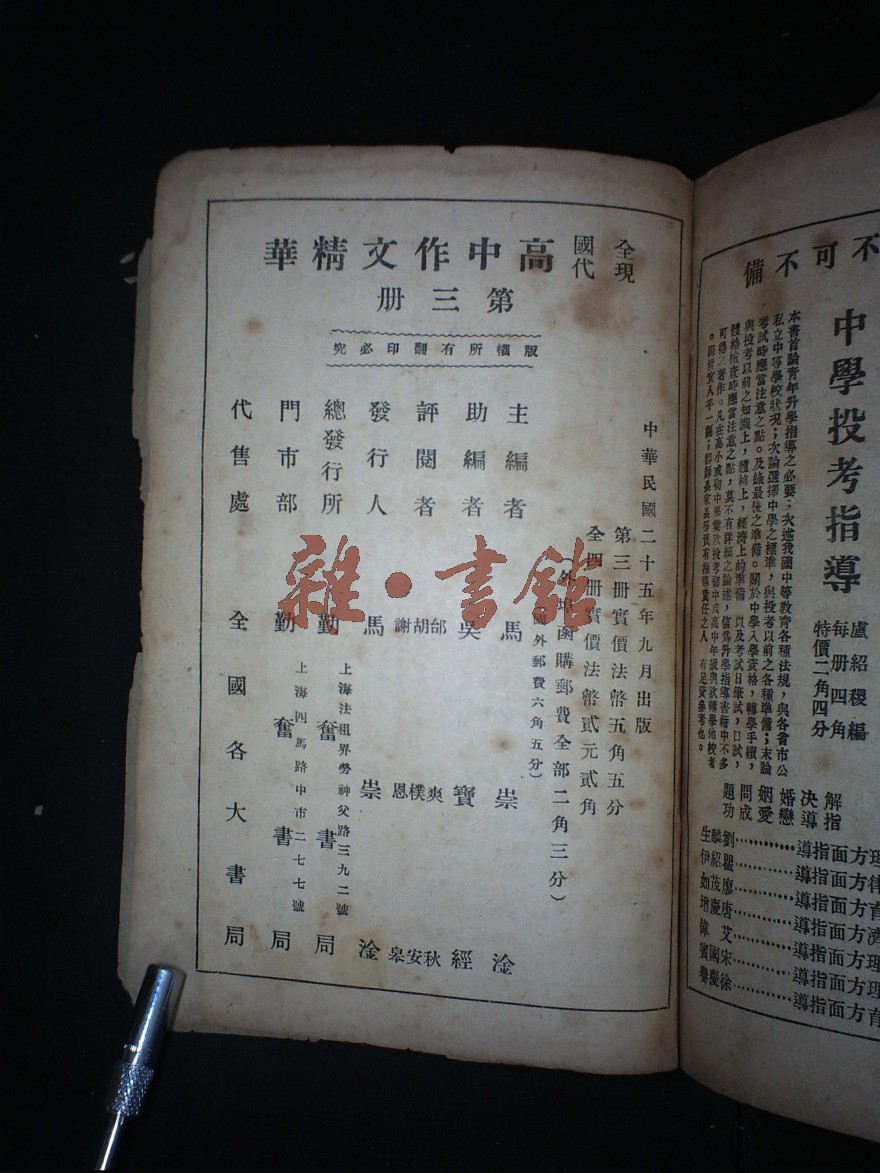 全國
現代
高中作文精華
第三冊
版權所有翻印必究
中華民國二十五年九月出版
第三冊實價法幣五角五分
全四冊實價法幣貳元貳角
(外埠函購郵費全部二角三分)
(國外郵費六角五分)
主編者 馬崇淦
助編者 吳寶經
評閱者 邰爽秋 胡樸安 謝恩皋
發行人 馬崇淦
總發行所 勤奮書局
上海法租界勞神父路三九二號
門市部 勤奮書局
上海四馬路中市二七七號
代售處 全國各大書局
雜·書館
不可不備
中學投考指導
盧紹稷編
每册四角
特價二角四分
本書首論青年升學指導之必要;次述我國中等教育各種法規,與各省市公
私立中等學校狀況;次論選擇中學之標準,與投考以前之各種準備;末論
考試時應當注意之點。及錄最後之準備。關於中學入學資格,轉學手續,
與投考以前之知識上,體格上,經濟上的準備 以及考試日筆試,口試,
體格檢查時應當注意之點,莫不有詳細之論述 信爲升學指導書籍中不多
可得之著作。凡在高小或初中畢業欲投考初中或高中年級與欲轉學他校者
解決婚姻問題
指導戀愛成功
理方面指導…………劉麟生
律方面指導…………瞿紹伊
育方面指導…………廖茂如
濟方面指導…………唐慶增
理方面指導…………艾偉
理方面指導…………宋國賓
育方面指導…………徐慶譽